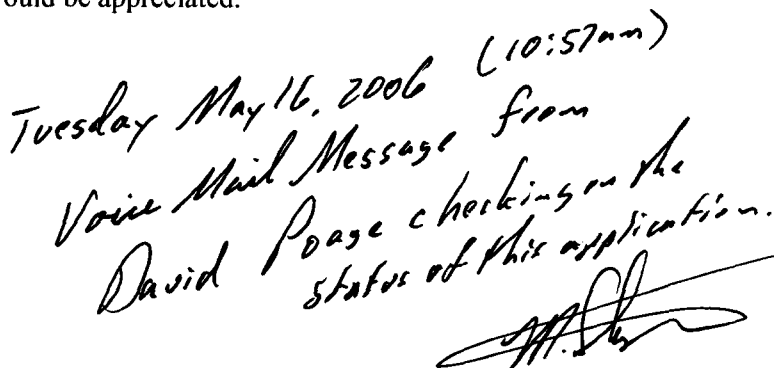 ould be appreciated.
Tuesday May 16, 2006 (10:57am)
Voice Mail Message from
David Poage checking on the
status of this application.